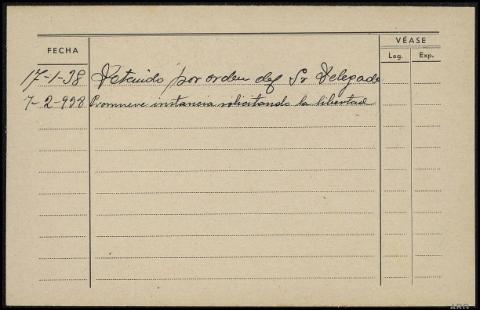 VÉASE
FECHA
Leg. Exp.
17-1-38 Detenido por orden del Sr Delegado
7-2-938 Promueve instancia solicitando la libertad